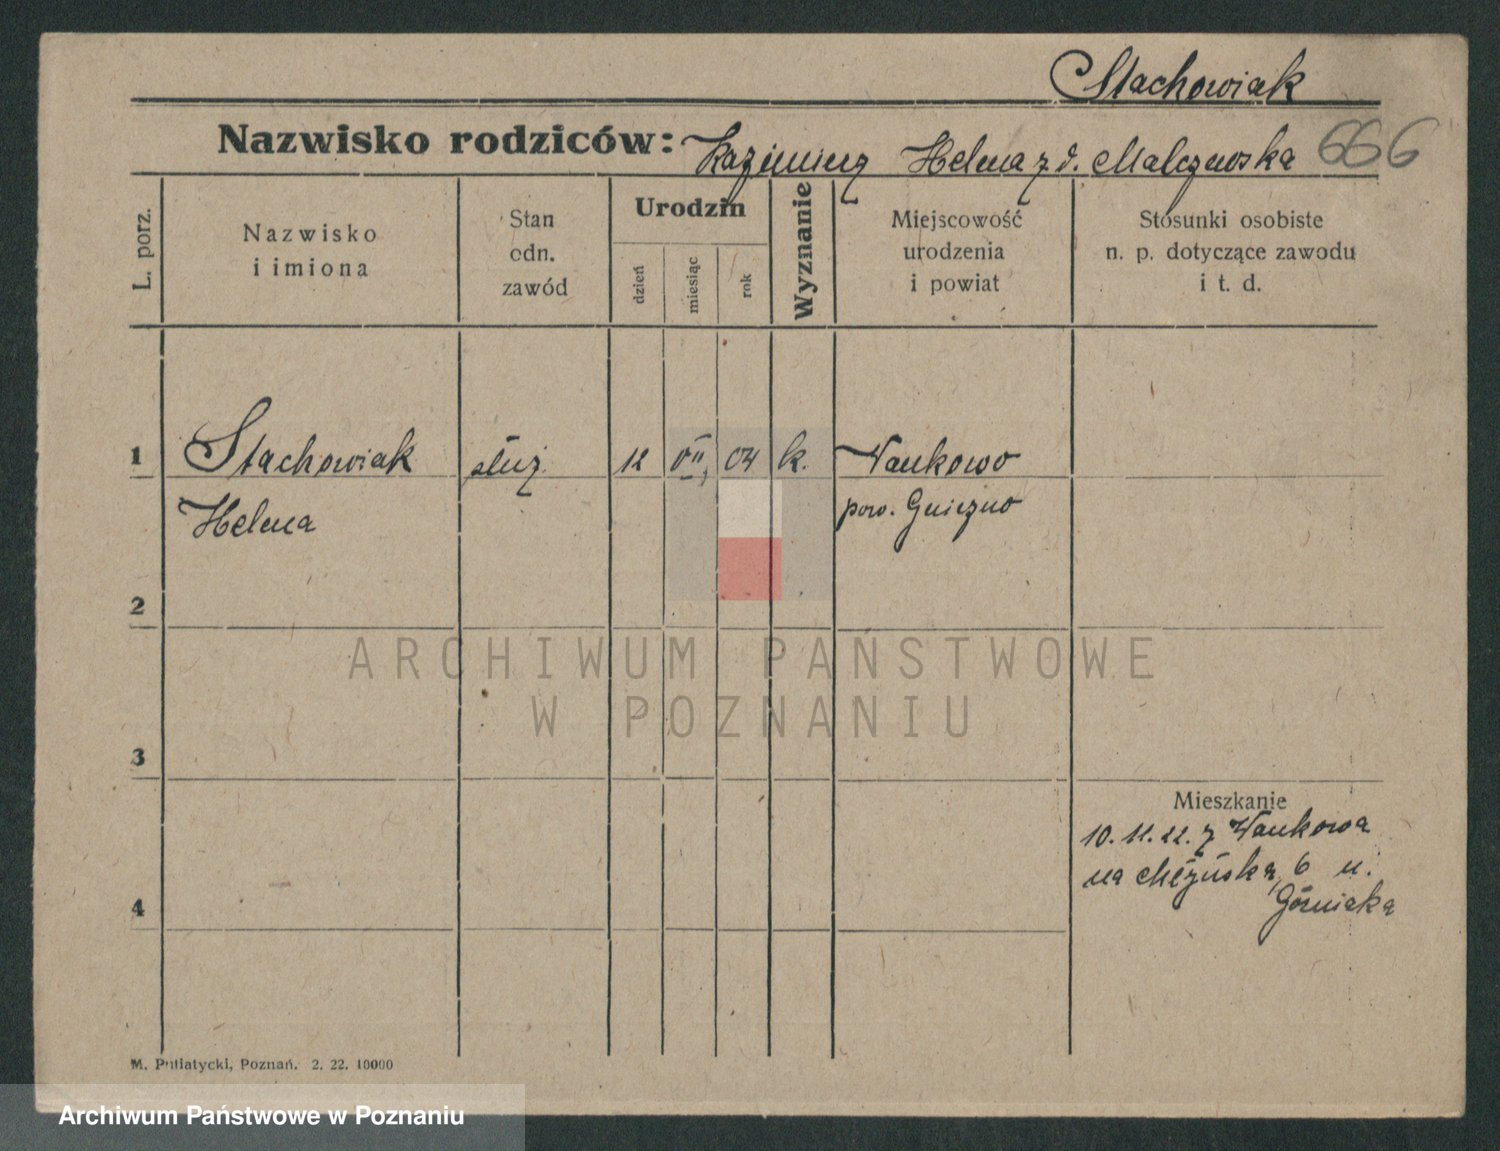 Stachowiak
Nazwisko rodziców: Kazimierz Helena z d. Malczewska 666
L. porz.
Nazwisko
i imiona
Stan
odn.
zawód
Urodzin
dzień
miesiąc
rok
Wyznanie
Miejscowość
urodzenia
i powiat
Stosunki osobiste
n. p. dotyczące zawodu
i t. d.
1 Stachowiak służ. 12 VII, 04 k. Wankowo
Helena pow. Gniezno
2
ARCHIWUM PAŃSTWOWE
W POZNANIU
3
Mieszkanie
10. 11. 22. z Wankowa
na 6 u.
4
M. Putiatycki, Poznań. 2. 22. 10000
Archiwum Państwowe w Poznaniu